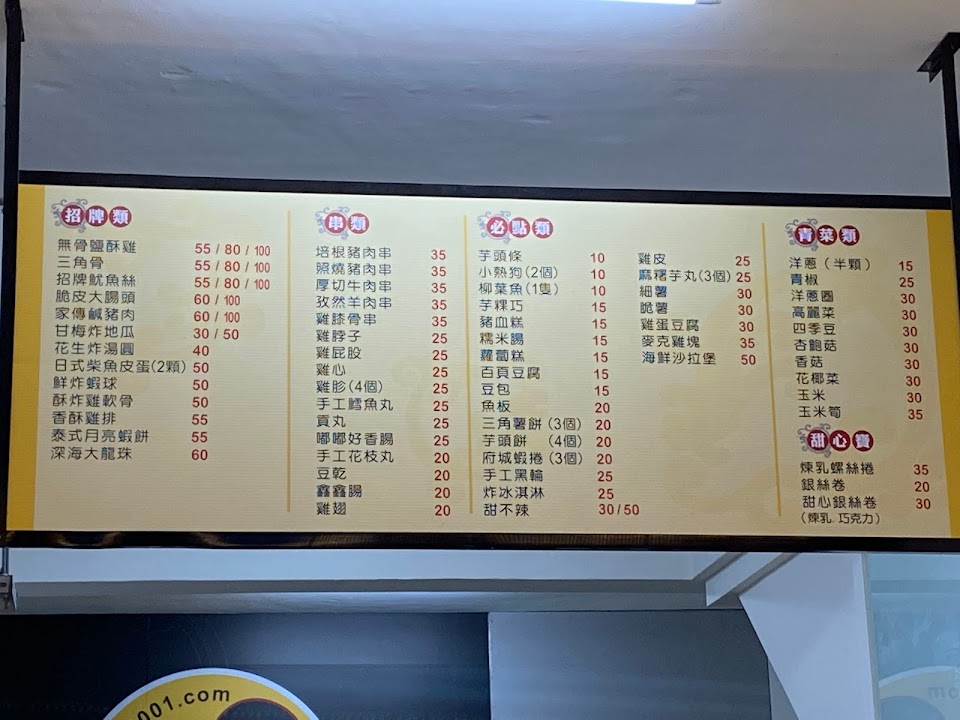 招牌類
無骨鹽酥雞 55 / 80 / 100
三角骨 55 / 80 / 100
招牌魷魚絲 55 / 80 / 100
脆皮大腸頭 60 / 100
家傳鹹豬肉 60 / 100
甘梅炸地瓜 30 / 50
花生炸湯圓 40
日式柴魚皮蛋(2顆) 50
鮮炸蝦球 50
酥炸雞軟骨 50
香酥雞排 55
泰式月亮蝦餅 55
深海大龍珠 60
串類
培根豬肉串 35
照燒豬肉串 35
厚切牛肉串 35
孜然羊肉串 35
雞膝骨串 35
雞脖子 25
雞屁股 25
雞心 25
雞胗(4個) 25
手工鱈魚丸 25
貢丸 25
嘟嘟好香腸 25
手工花枝丸 20
豆乾 20
鑫鑫腸 20
雞翅 20
必點類
芋頭條 10
小熱狗(2個) 10
柳葉魚(1隻) 10
芋粿巧 15
豬血糕 15
糯米腸 15
蘿蔔糕 15
百頁豆腐 15
豆包 15
魚板 20
三角薯餅(3個) 20
芋頭餅 (4個) 20
府城蝦捲(3個) 20
手工黑輪 25
炸冰淇淋 25
甜不辣 30/50
雞皮 25
麻糬芋丸(3個) 25
細薯 30
脆薯 30
雞蛋豆腐 30
麥克雞塊 35
海鮮沙拉堡 50
青菜類
洋蔥(半顆) 15
青椒 25
洋蔥圈 30
高麗菜 30
四季豆 30
杏鮑菇 30
香菇 30
花椰菜 30
玉米 30
玉米筍 35
甜心寶
煉乳螺絲捲 35
銀絲卷 20
甜心銀絲卷 30
(煉乳.巧克力)
001.com